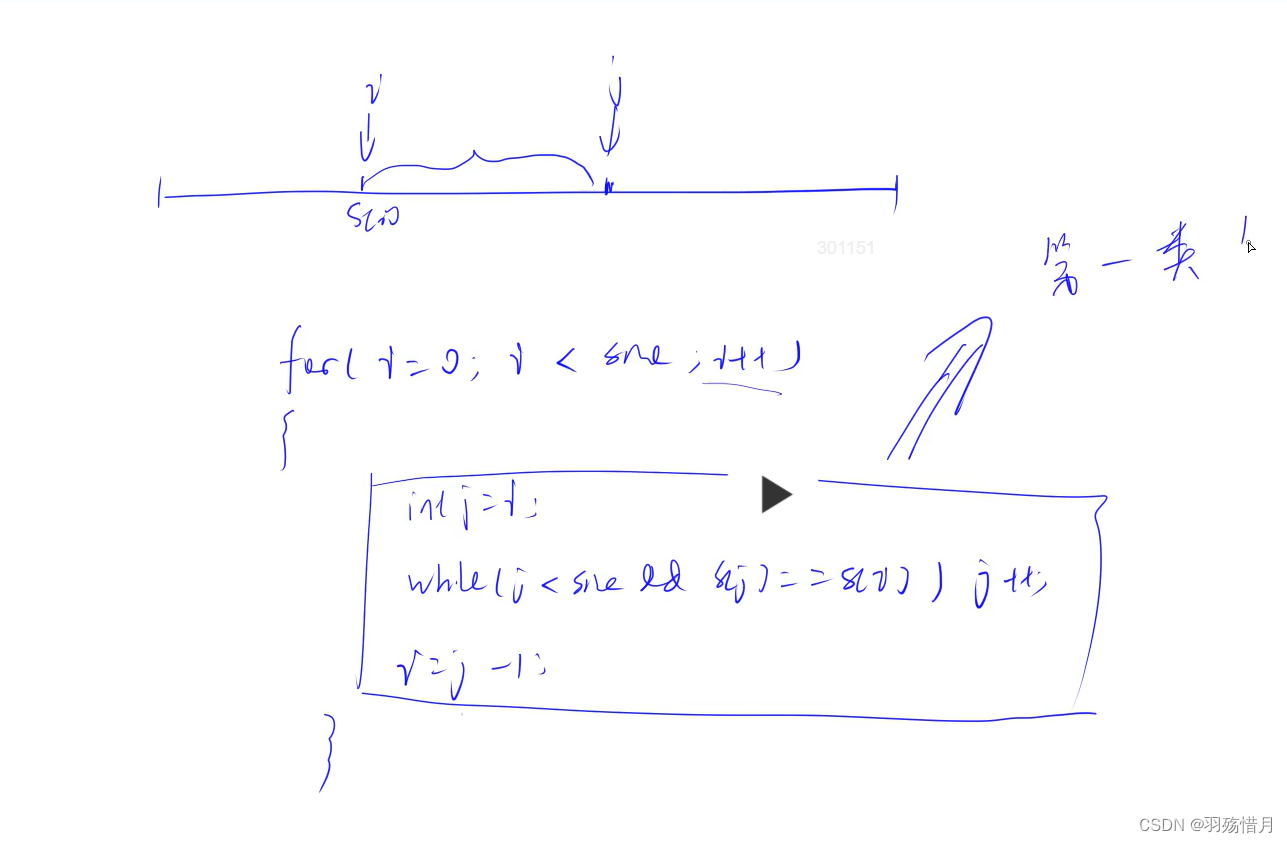 i j
s[i]
301151
第一类
for( i=0; i < size ; i++ )
{
int j=i;
while(j < size && s[j]==s[i] ) j++;
i=j -1;
}
CSDN @羽殇惜月